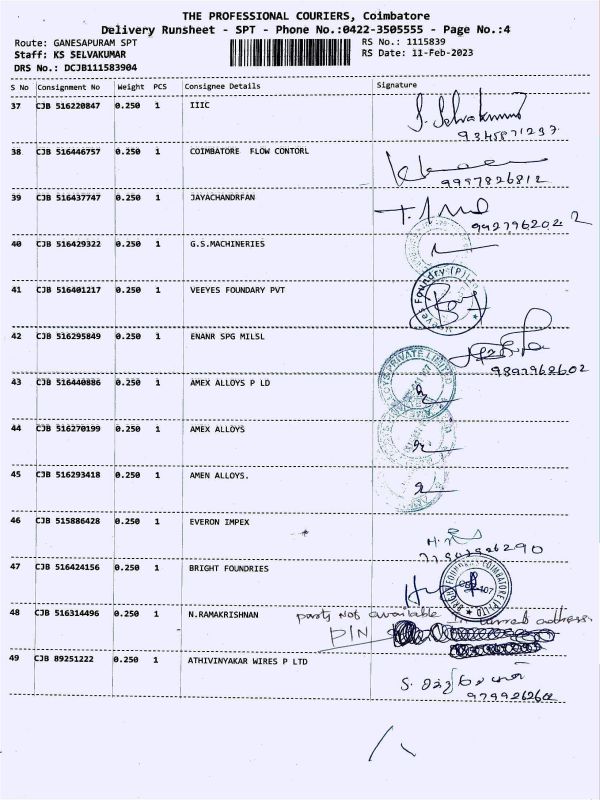 THE PROFESSIONAL COURIERS, Coimbatore
Delivery Runsheet - SPT - Phone No.:0422-3505555 - Page No.:4
Route: GANESAPURAM SPT RS No.: 1115839
Staff: KS SELVAKUMAR RS Date: 11-Feb-2023
DRS No.: DCJB111583904
S No Consignment No Weight PCS Consignee Details Signature
37 CJB 516220847 0.250 1 IIIC S. Selvakumar
9345871237
38 CJB 516446757 0.250 1 COIMBATORE FLOW CONTORL
9997826812
39 CJB 516437747 0.250 1 JAYACHANDRFAN
9427962022
40 CJB 516429322 0.250 1 G.S.MACHINERIES
41 CJB 516401217 0.250 1 VEEYES FOUNDARY PVT Veeyes Foundry (P)
42 CJB 516295849 0.250 1 ENANR SPG MILSL
9897962602
43 CJB 516440886 0.250 1 AMEX ALLOYS P LD ALLOYS PRIVATE LIMITED
44 CJB 516270199 0.250 1 AMEX ALLOYS
45 CJB 516293418 0.250 1 AMEN ALLOYS.
46 CJB 515886428 0.250 1 EVERON IMPEX
47 CJB 516424156 0.250 1 BRIGHT FOUNDRIES
48 CJB 516314496 0.250 1 N.RAMAKRISHNAN party Not available address
D/N
49 CJB 89251222 0.250 1 ATHIVINYAKAR WIRES P LTD